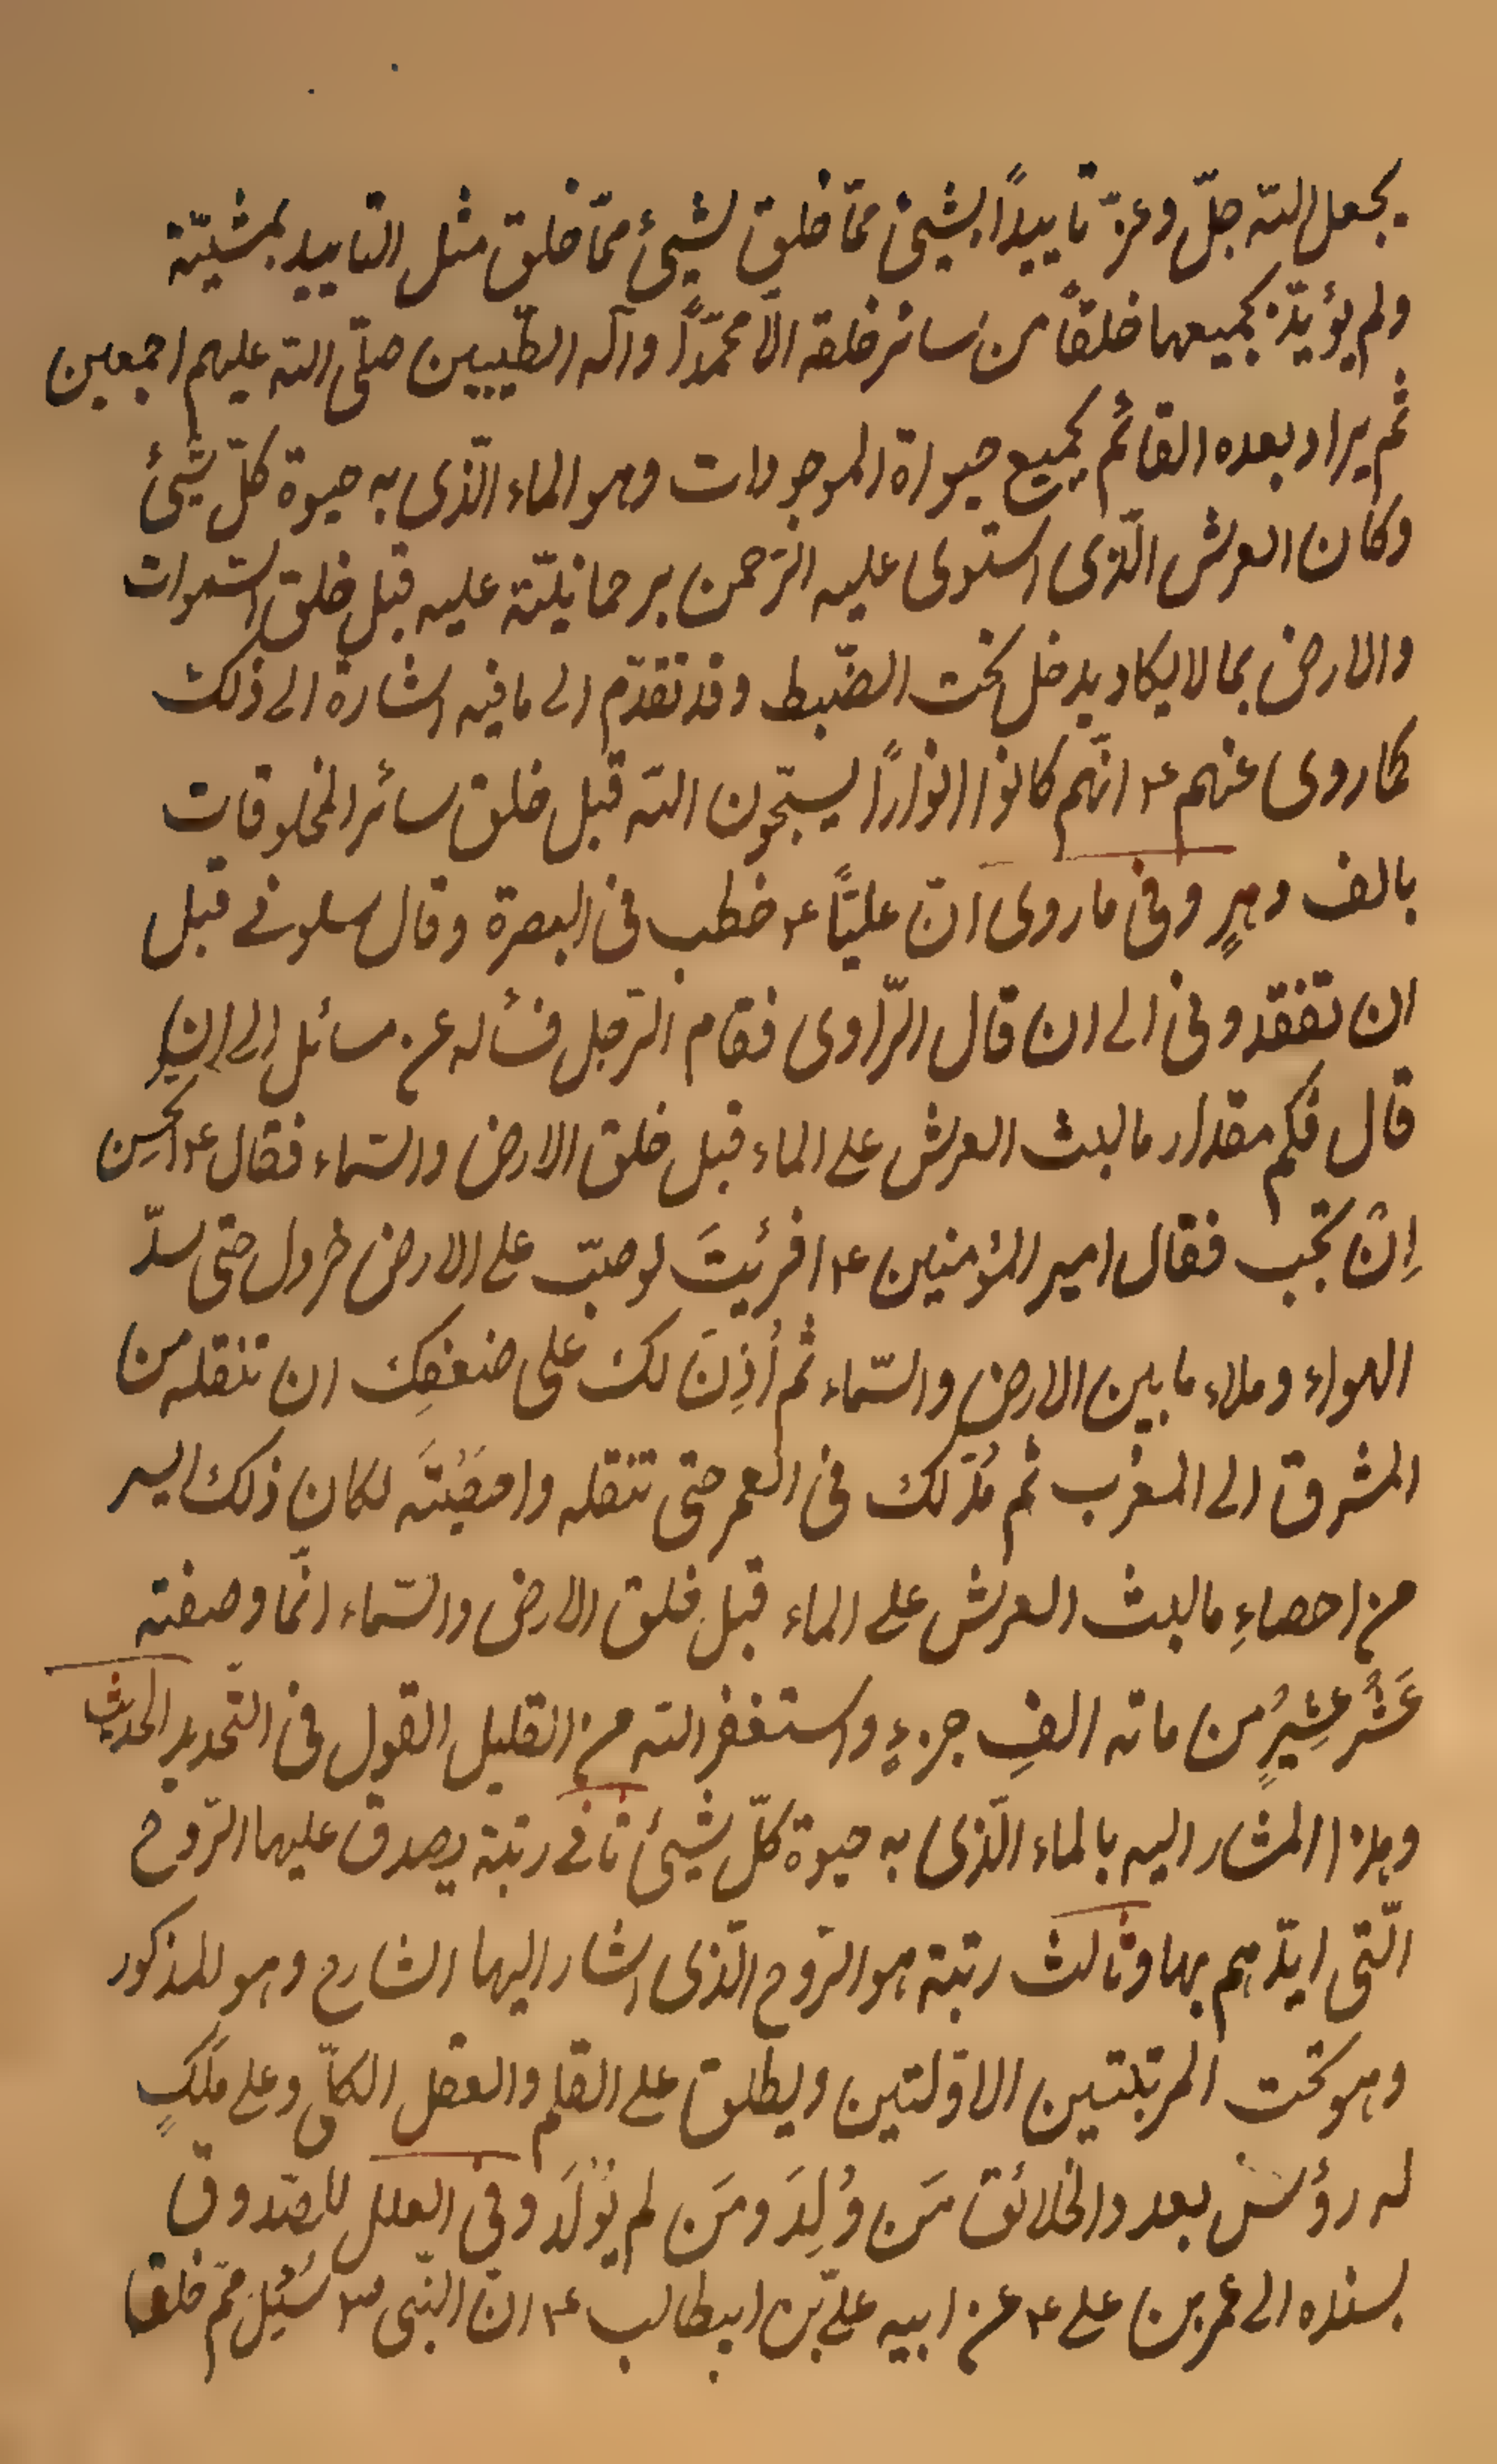 يجعل الله جلّ وعزّ تاييداً بشيئ ممّا خلق لشيئ ممّا خلق مثل التاييد بمشيّته
ولم يؤيّد بجميعها خلقاً من سائر خلقه الّا محمّداً وآله الطّيبين صلّى الله عليهم اجمعين
ثم يراد بعده القائم بجميع حيواة الموجودات وهو الماء الّذى به حيوة كلّ شيئ
وكان العرش الّذى استوى عليه الرّحمن برحمانيّته عليه قبل خلق السّموات
والارض بما لا يكاد يدخل تحت الضّبط وقد تقدّم الى ما فيه اشارة الى ذلك
كما روى عنهم ۴ انّهم كانوا انواراً يسبّحون الله قبل خلق سائر المخلوقات
بالف دهرٍ وفى ما روى انّ عليّاً ۴ خطب فى البصرة وقال سلونى قبل
ان تفقدونى الى ان قال الرّاوى فقام الرّجل فسأله عن مسائل الى ان
قال فكم مقدار ما لبث العرش على الماء قبل خلق الارض والسّماء فقال ۴ اتحسن
اِن تحب فقال امير المؤمنين ۴ افرئيتَ لو صبّ على الارض خردل حتى سدّ
الهواء وملاء ما بين الارض والسّماء ثم اُذِنَ لك على ضعفِك ان تنقله من
المشرق الى المغرب ثم مُدّ لك فى العمر حتى تنقله واحصَيْتَه لكان ذلك ايسر
من احصاءِ ما لبث العرش على الماء قبل خلق الارض والسّماء انّما وصفته
عَشْر عشيرٍ من مائه الفِ جزءٍ واستغفر الله من القليل القول فى التّحديد الحديث
وهذا المشار اليه بالماء الّذى به حيوة كلّ شيئ ثانى رتبة يصدق عليها الرّوح
الّتى ايّدهم بها وثالث رتبة هو الرّوح الّذى اشار اليها الشارح وهو المذكور
وهو تحت المرتبتين الاوّلتين ويطلق على القلم والعقل الكلّى وعلى مَلَكٍ
له رؤس بعدد الخلائق مَن وُلِدَ ومَن لم يُولَد وفى العلل للصّدوق
بسنده الى عمر بن على ۴ عن ابيه علىّ بن ابيطالب ۴ انّ النّبى ص سُئِلَ ممّ خلق